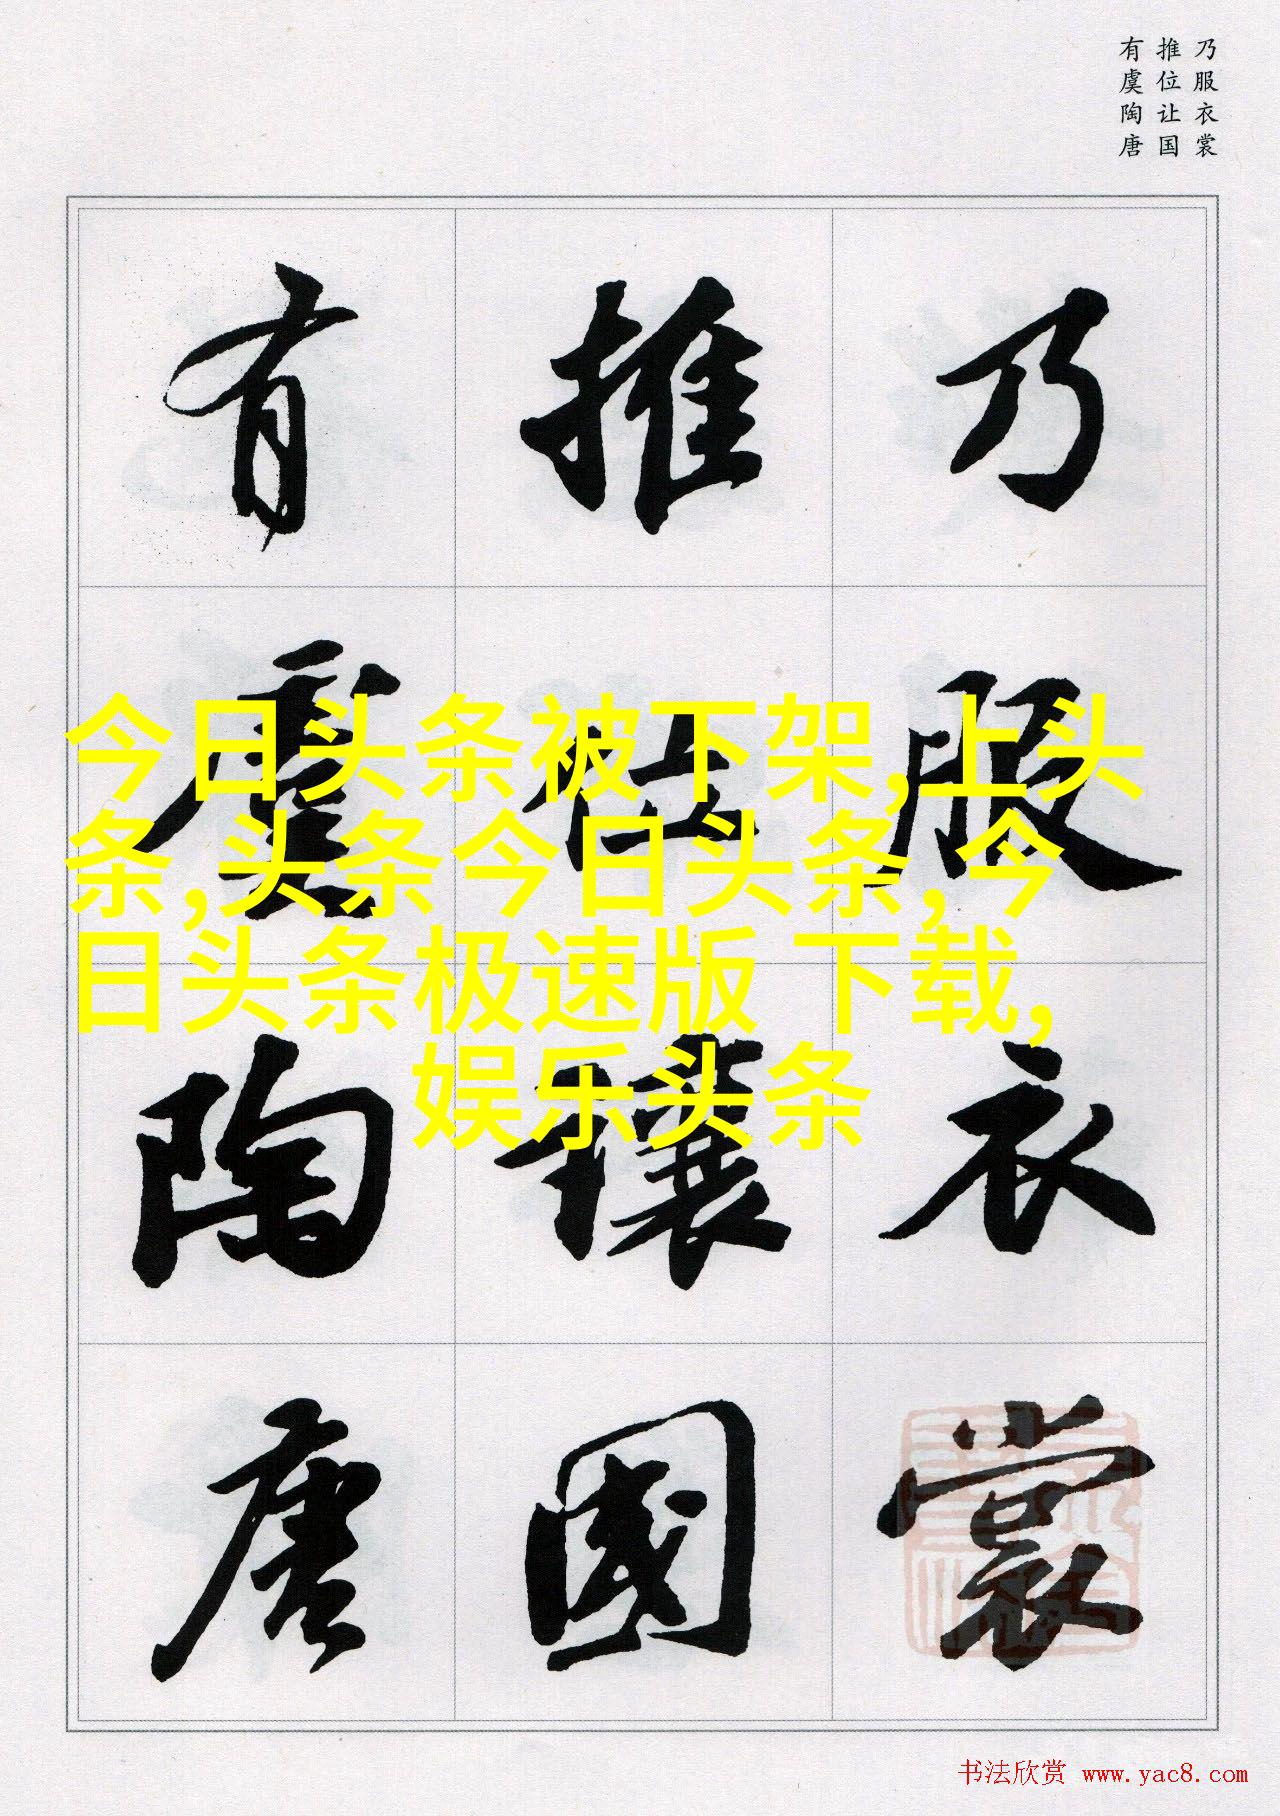 乃服衣裳
推位让国
有虞陶唐
乃服衣裳
推位讓國
有虞陶唐
今日头条被下架,上头
条,头条今日头条,今
日头条极速版 下载,
娱乐头条
书法欣赏 www.yac8.com